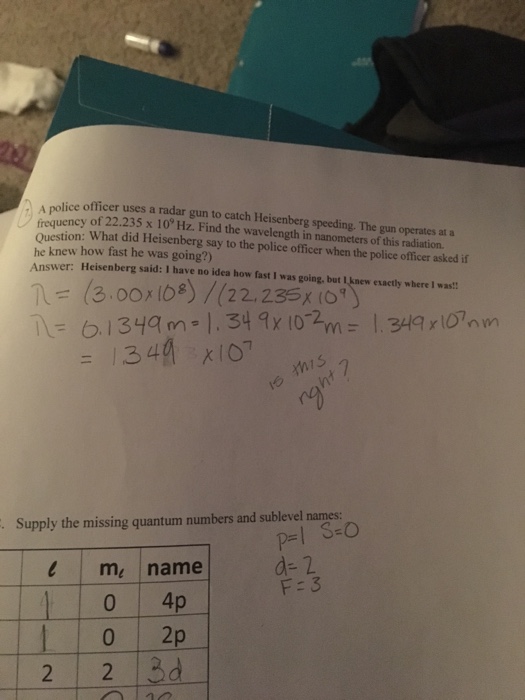 7. A police officer uses a radar gun to catch Heisenberg speeding. The gun operates at a
frequency of 22.235 x 10⁹ Hz. Find the wavelength in nanometers of this radiation.
Question: What did Heisenberg say to the police officer when the police officer asked if
he knew how fast he was going?)
Answer: Heisenberg said: I have no idea how fast I was going, but I knew exactly where I was!!
λ = (3.00x10⁸) / (22.235x10⁹)
λ = 0.1349m = 1.349x10⁻²m = 1.349x10⁷nm
= 1349 x10⁷
is this
right?
. Supply the missing quantum numbers and sublevel names:
p=1 S=0
d=2
F=3
ℓ mℓ name
1 0 4p
1 0 2p
2 2 3d